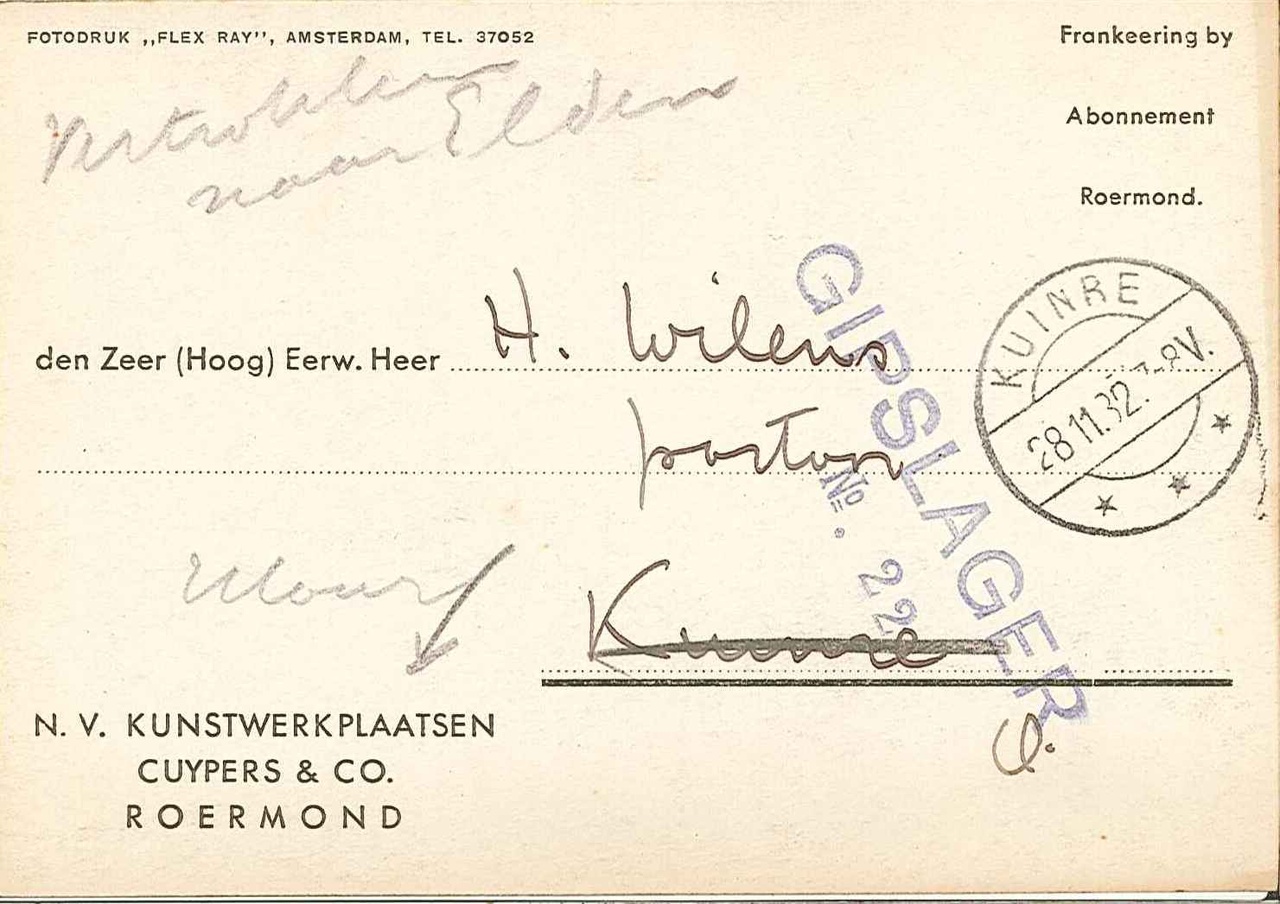 FOTODRUK ,,FLEX RAY'', AMSTERDAM, TEL. 37052
Frankeering by
Abonnement
Roermond.
Vertrokken
naar Elden
GIPSLAGER
No. 22
KUINRE
28 11.32. 7-8V.
den Zeer (Hoog) Eerw. Heer H. Wilens
pastor
Kuinre
N. V. KUNSTWERKPLAATSEN
CUYPERS & CO.
ROERMOND